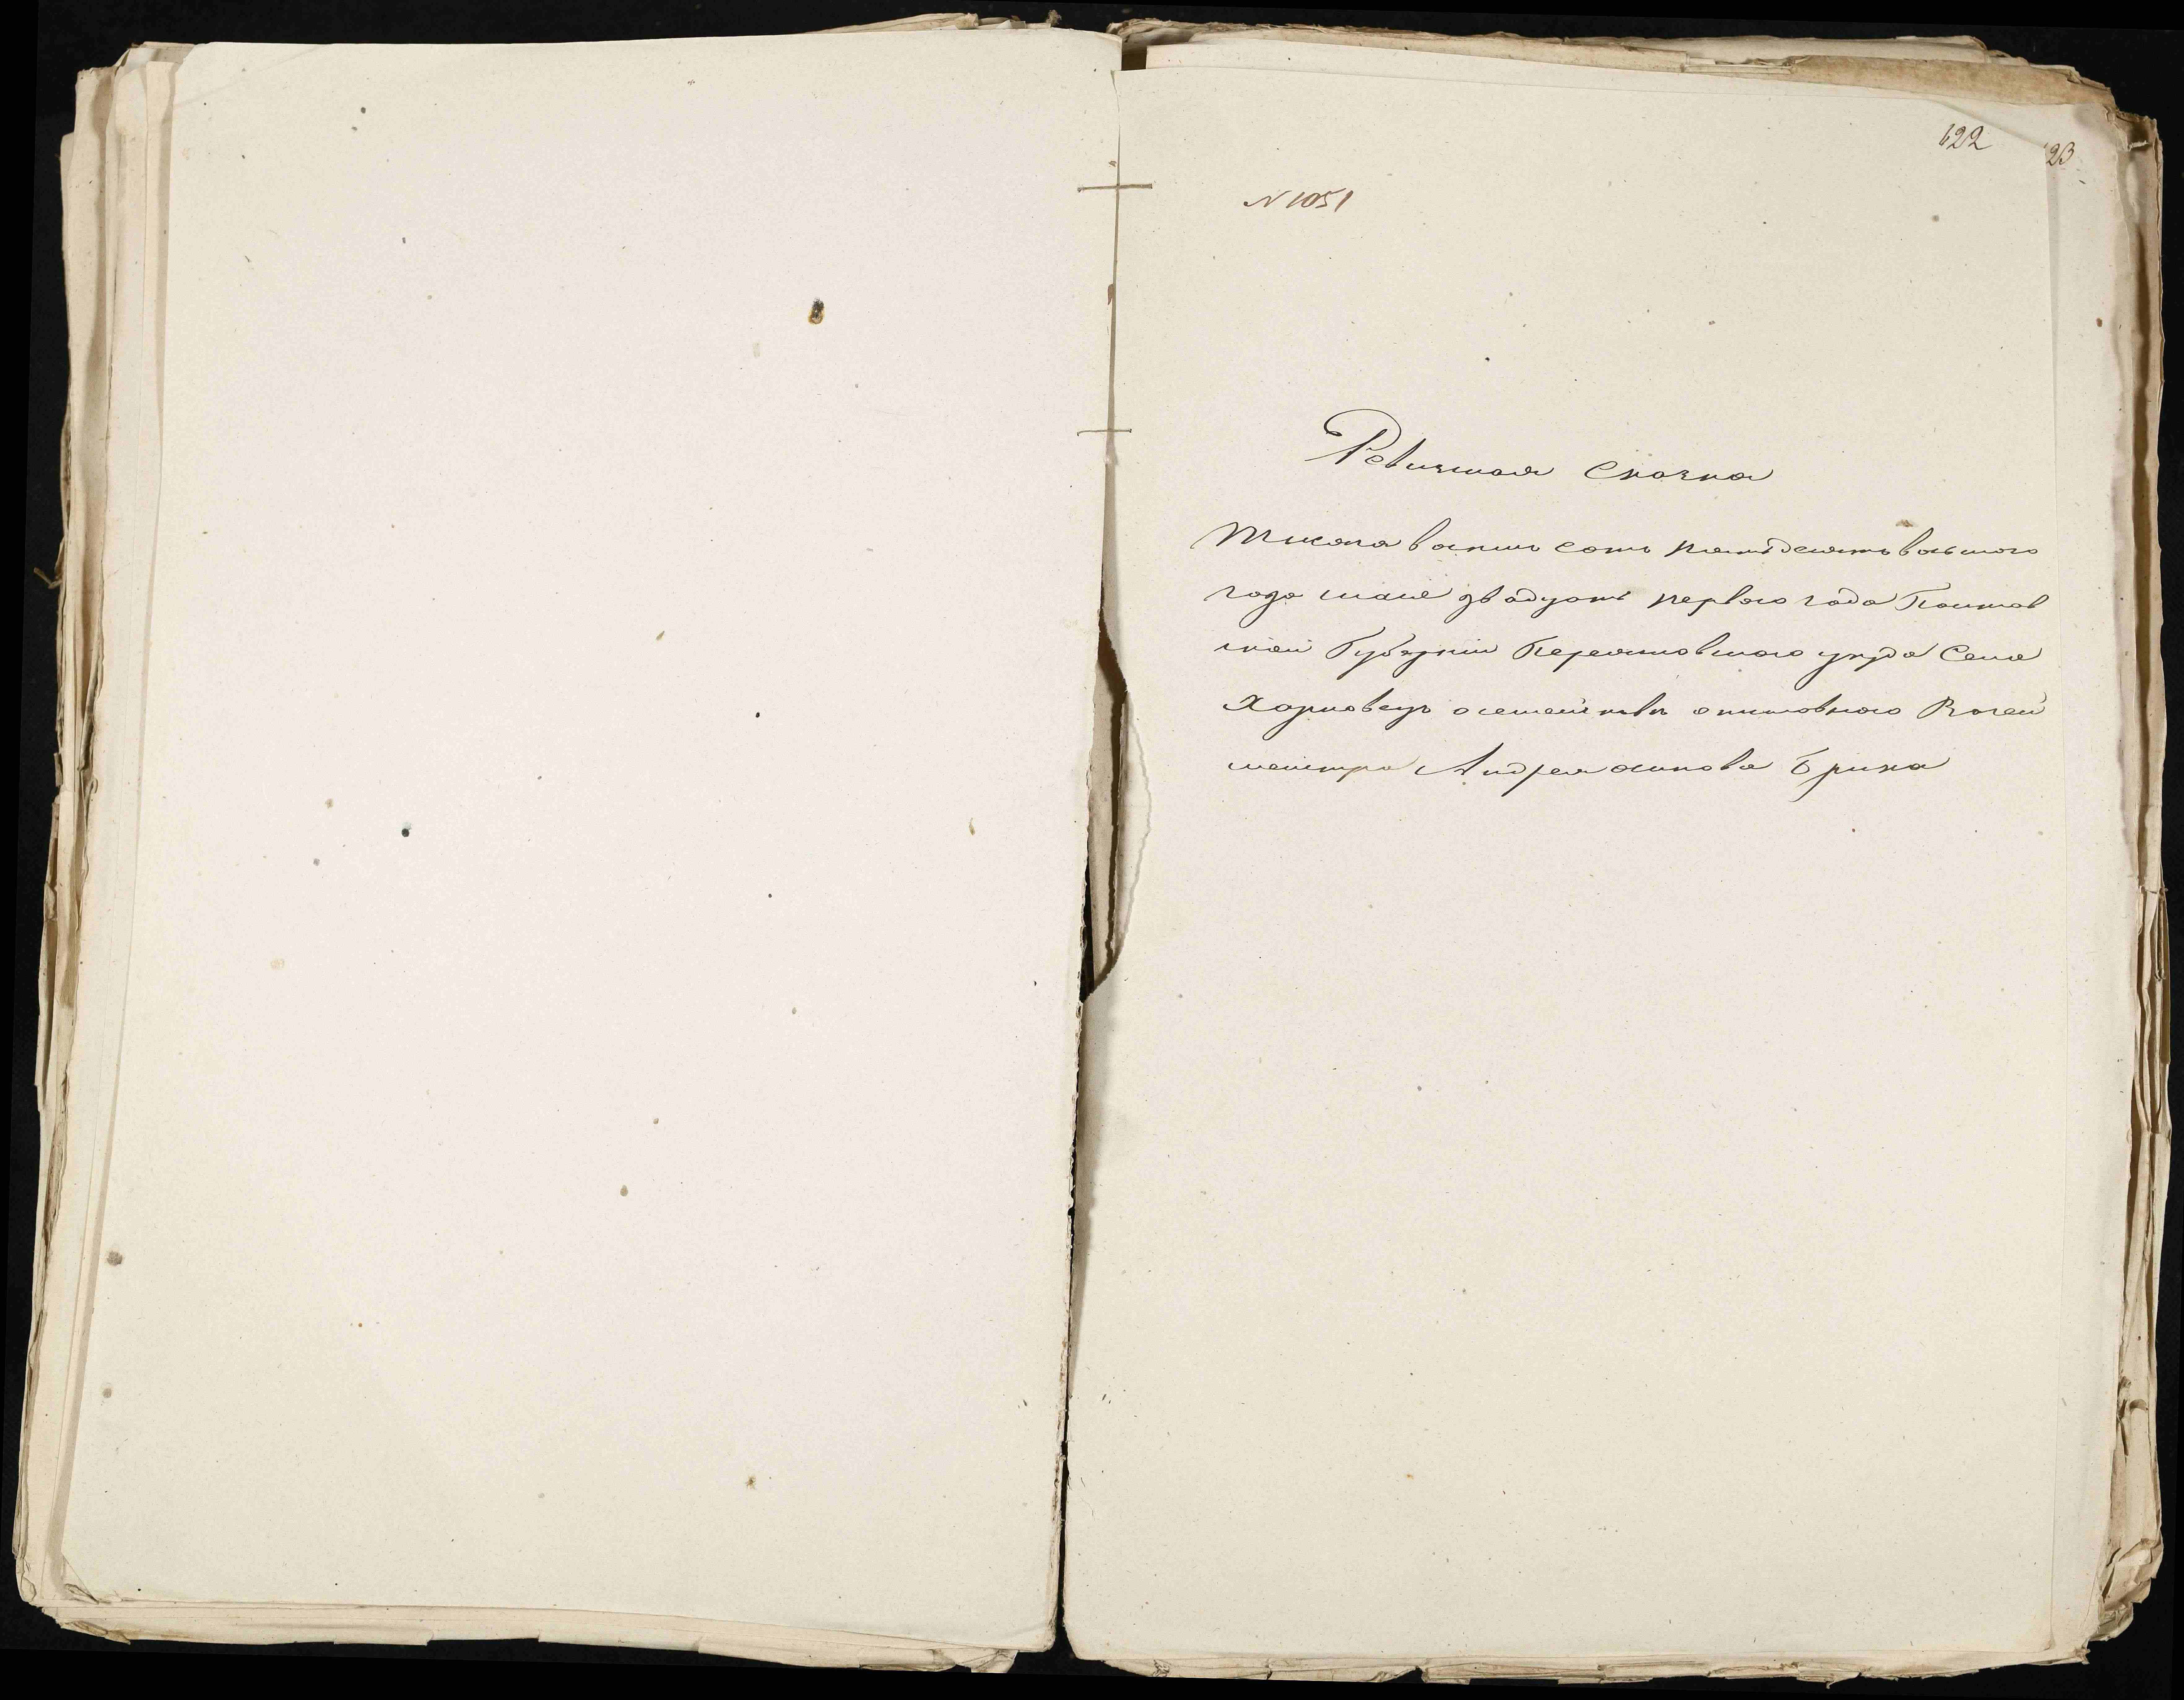 622
23
N 1051
Ревизская Сказка
Тысяча восемь сотъ пятьдесятъ восьмого
года мая двадцать первого года Полтав
ской Губерніи Переяславского уезда Села
Харковецъ о семействѣ отставного
Андрея осипова Брика